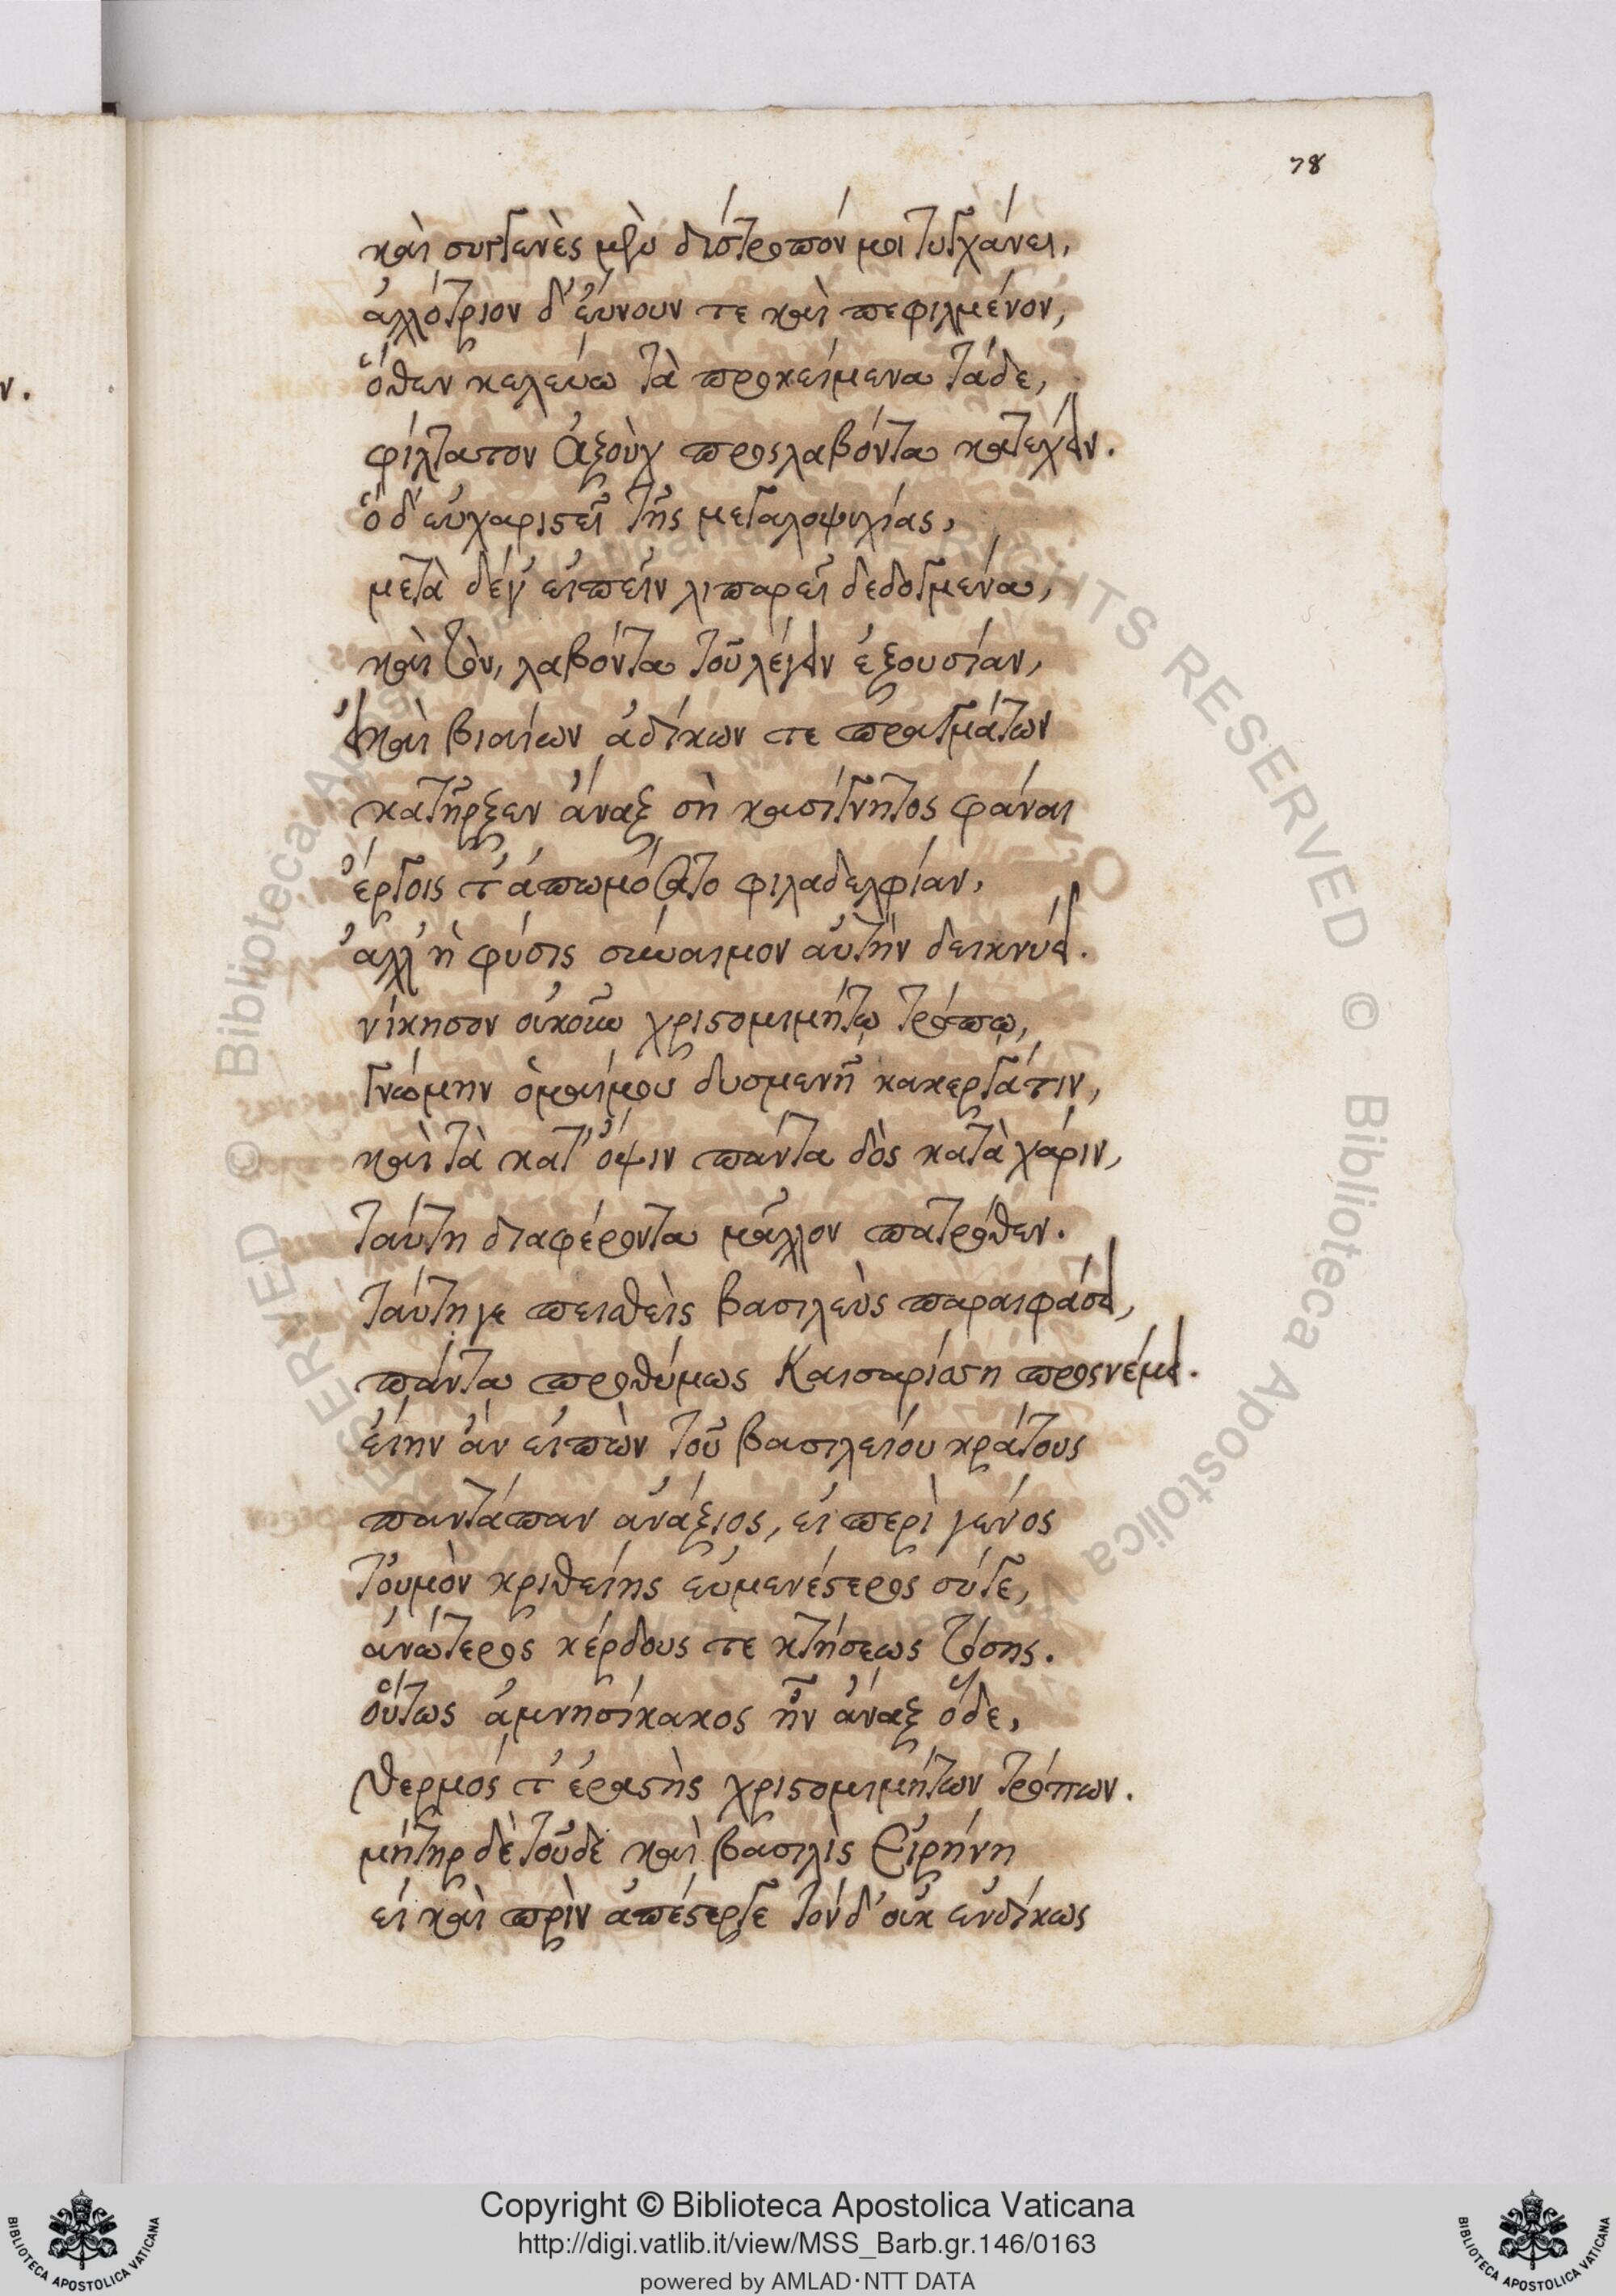 78
καὶ συγγενὲς μὲν δύστροπόν μοι τυγχάνει,
ἀλλότριον δ' εὔνουν τε καὶ πεφιλμένον,
ὅθεν κελεύω τὰ προκείμενα τάδε,
φίλτατον Ἀξοὺχ προσλαβόντα κατέχειν.
ὁ δ' εὐχαριστεῖ τῆς μεγαλοψυχίας,
μετὰ δέγ' εἰπεῖν λιπαρεῖ δεδογμένα,
καὶ τὸν, λαβόντα τοῦ λέγειν ἐξουσίαν,
εἰ καὶ βιαίων ἀδίκων τε πραγμάτων
κατῆρξεν ἄναξ σὴ κασίγνητος φάναι
ἔργοις τ' ἀπωμόσατο φιλαδελφίαν,
ἀλλ' ἡ φύσις σύναιμον αὐτὴν δεικνύει.
νίκησον οὐκοῦν χριστομιμήτῳ τρόπῳ,
γνώμην ὁμαίμου δυσμενῆ κακεργάτιν,
καὶ τὰ κατ' ὄψιν πάντα δὸς κατὰ χάριν,
ταύτῃ διαφέροντα μᾶλλον πατρόθεν.
ταύτῃ γε πεισθεὶς βασιλεὺς παραιφάσει,
πάντα προθύμως Καισαρίσσῃ προσνέμει.
εἴην ἂν εἰπὼν τοῦ βασιλείου κράτους
παντάπαν ἀνάξιος, εἰ περὶ γένος
τοὐμὸν κριθείης εὐμενέστερος σύγε,
ἀνώτερος κέρδους τε κτήσεως τόσης.
οὕτως ἀμνησίκακος ἦν ἄναξ ὅδε,
θερμός τ' ἐραστὴς χριστομιμήτων τρόπων.
μήτηρ δὲ τοῦδε καὶ βασιλὶς Εἰρήνη
εἰ καὶ πρὶν ἀπέστεργε τόνδ' οὐκ ἐνδίκως
Copyright © Biblioteca Apostolica Vaticana
http://digi.vatlib.it/view/MSS_Barb.gr.146/0163
powered by AMLAD·NTT DATA